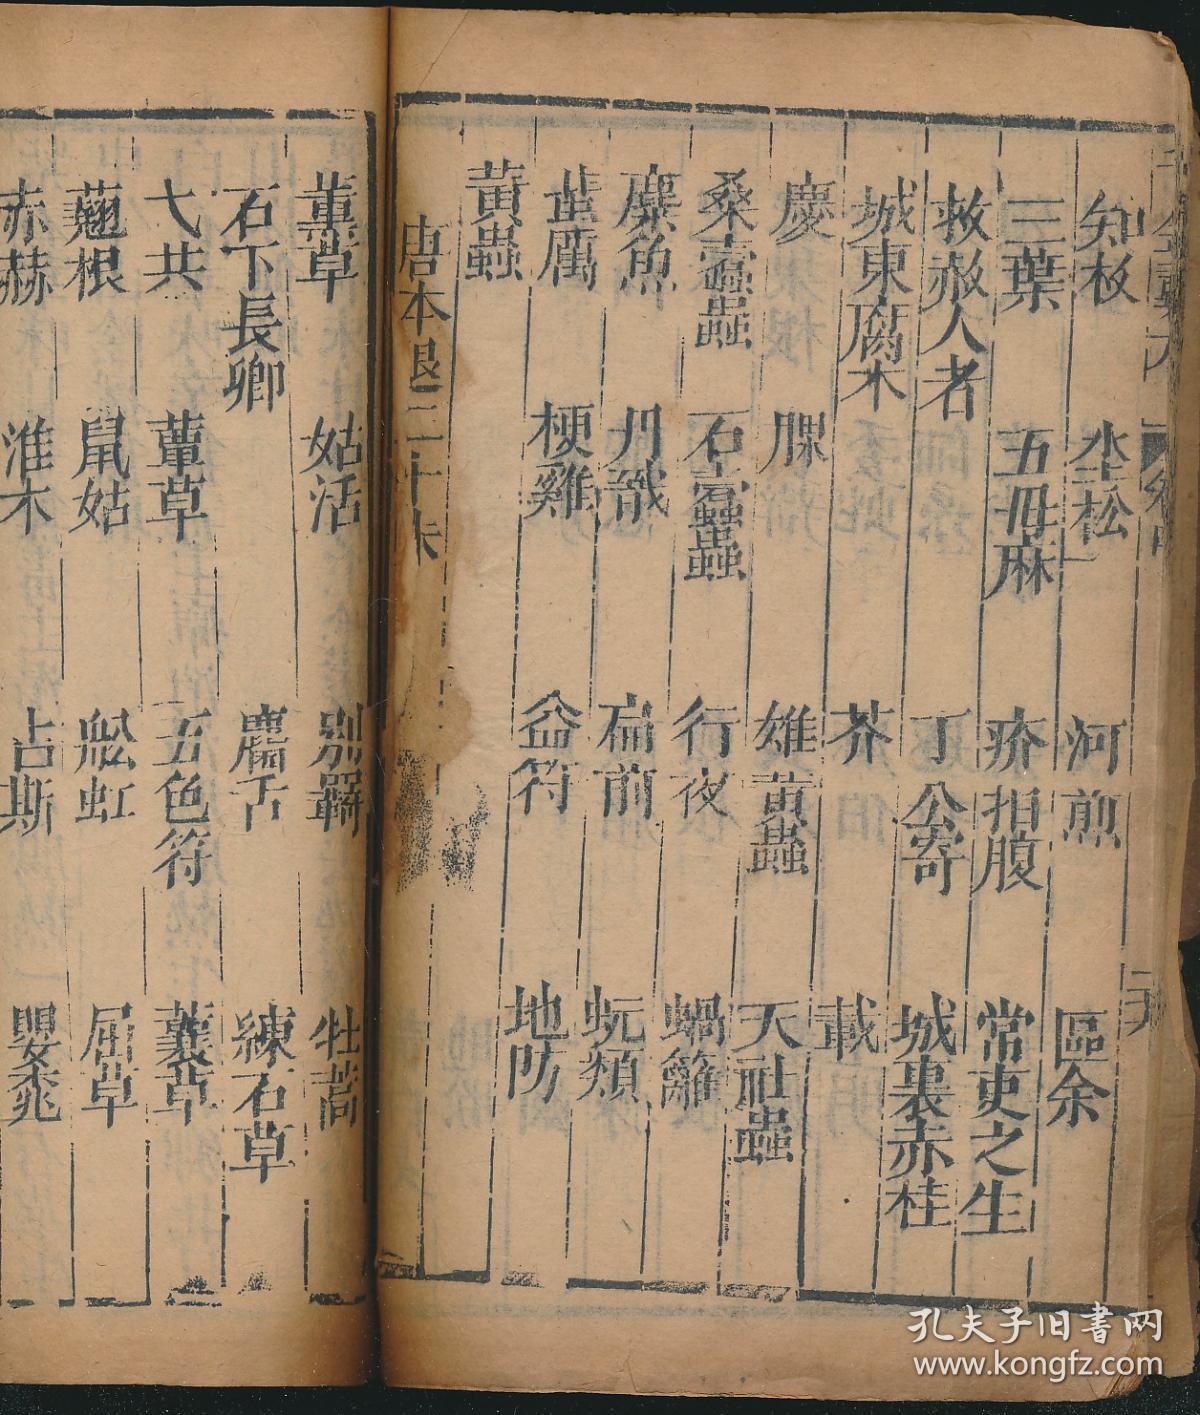 知杖　坔松　河煎　區余
三葉　五母麻　疥拍腹　常吏之生
救赦人者　丁公寄　城裏赤桂
城東腐木　芥　載
慶　腂　雄黃蟲　天社蟲
桑蠹蟲　石蠹蟲　行夜　蝸籬
麋魚　丹戩　扁前　蚖類
蜚厲　梗雞　益符　地防
黃蟲
唐本退二十味
薰草　姑活　別羇　牡蒿
石下長卿　麕舌　練石草
弋共　蕈草　五色符　蘘草
翹根　鼠姑　船虹　屈草
赤赫　淮木　占斯　嬰桃
孔夫子旧书网
www.kongfz.com